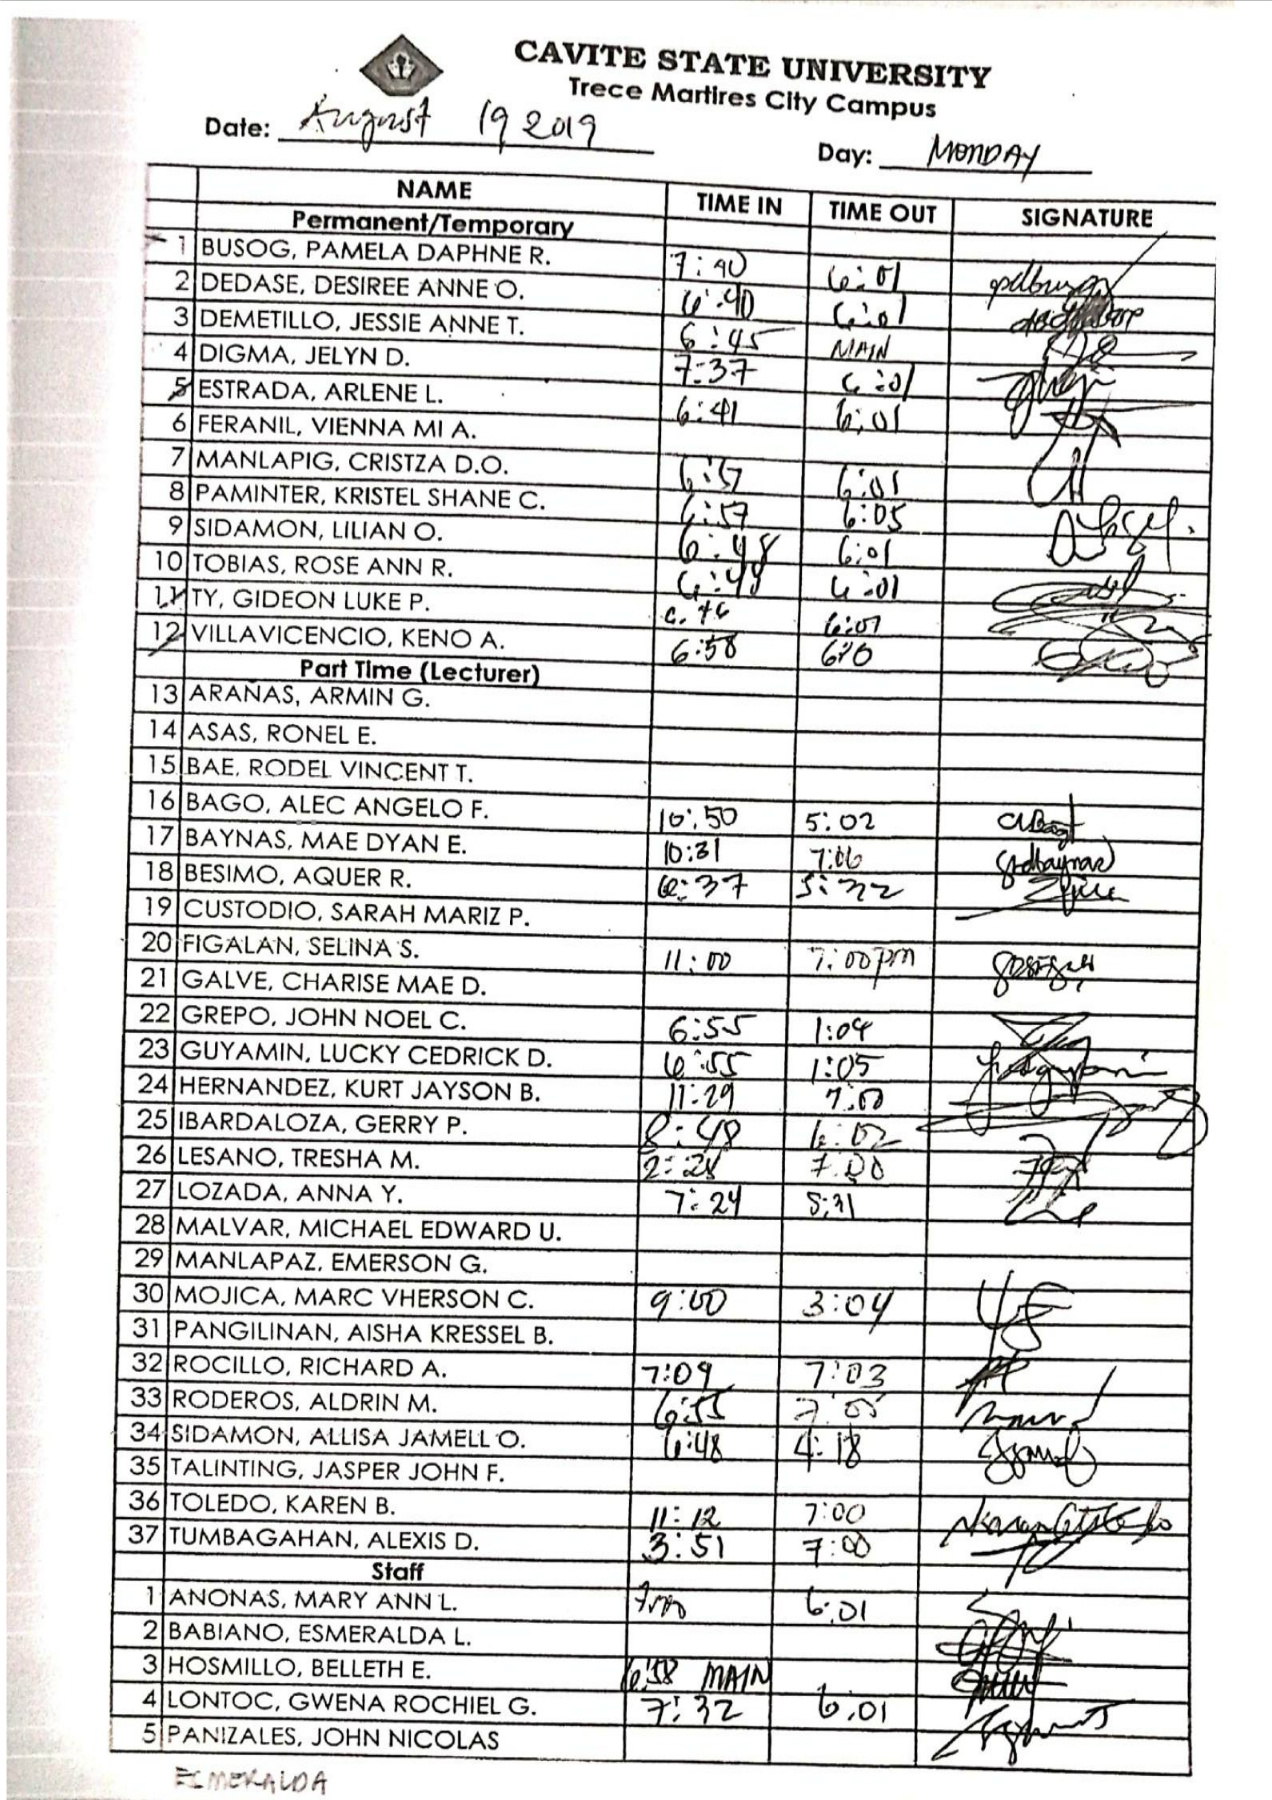 CAVITE STATE UNIVERSITY
Trece Martires City Campus
Date: August 19 2019
Day: MONDAY
NAME TIME IN TIME OUT SIGNATURE
Permanent/Temporary
1 BUSOG, PAMELA DAPHNE R. 7:40 6:01
2 DEDASE, DESIREE ANNE O. 6:40 6:01
3 DEMETILLO, JESSIE ANNE T. 6:45 MAIN
4 DIGMA, JELYN D. 7:37 6:01
5 ESTRADA, ARLENE L. 6:41 6:01
6 FERANIL, VIENNA MI A.
7 MANLAPIG, CRISTZA D.O. 6:57 6:01
8 PAMINTER, KRISTEL SHANE C. 6:57 6:05
9 SIDAMON, LILIAN O. 6:48 6:01
10 TOBIAS, ROSE ANN R. 6:49 6:01
11 TY, GIDEON LUKE P. 6:46 6:01
12 VILLAVICENCIO, KENO A. 6:58
Part Time (Lecturer)
13 ARAÑAS, ARMIN G.
14 ASAS, RONEL E.
15 BAE, RODEL VINCENT T.
16 BAGO, ALEC ANGELO F. 10:50 5:02
17 BAYNAS, MAE DYAN E. 10:31 7:06
18 BESIMO, AQUER R. 5:22
19 CUSTODIO, SARAH MARIZ P.
20 FIGALAN, SELINA S. 11:00 7:00pm
21 GALVE, CHARISE MAE D.
22 GREPO, JOHN NOEL C. 6:55 1:04
23 GUYAMIN, LUCKY CEDRICK D. 6:55 1:05
24 HERNANDEZ, KURT JAYSON B. 11:29 7:00
25 IBARDALOZA, GERRY P. 8:48 6:02
26 LESANO, TRESHA M. 2:28 7:00
27 LOZADA, ANNA Y. 7:24 5:31
28 MALVAR, MICHAEL EDWARD U.
29 MANLAPAZ, EMERSON G.
30 MOJICA, MARC VHERSON C. 9:00 3:04
31 PANGILINAN, AISHA KRESSEL B.
32 ROCILLO, RICHARD A. 7:09 7:03
33 RODEROS, ALDRIN M. 6:55 7:05
34 SIDAMON, ALLISA JAMELL O. 6:48 4:18
35 TALINTING, JASPER JOHN F.
36 TOLEDO, KAREN B. 11:12 7:00
37 TUMBAGAHAN, ALEXIS D. 3:51 7:00
Staff
1 ANONAS, MARY ANN L. 6:01
2 BABIANO, ESMERALDA L.
3 HOSMILLO, BELLETH E. 6:58 MAIN
4 LONTOC, GWENA ROCHIEL G. 7:32 6:01
5 PANIZALES, JOHN NICOLAS
ESMERALDA